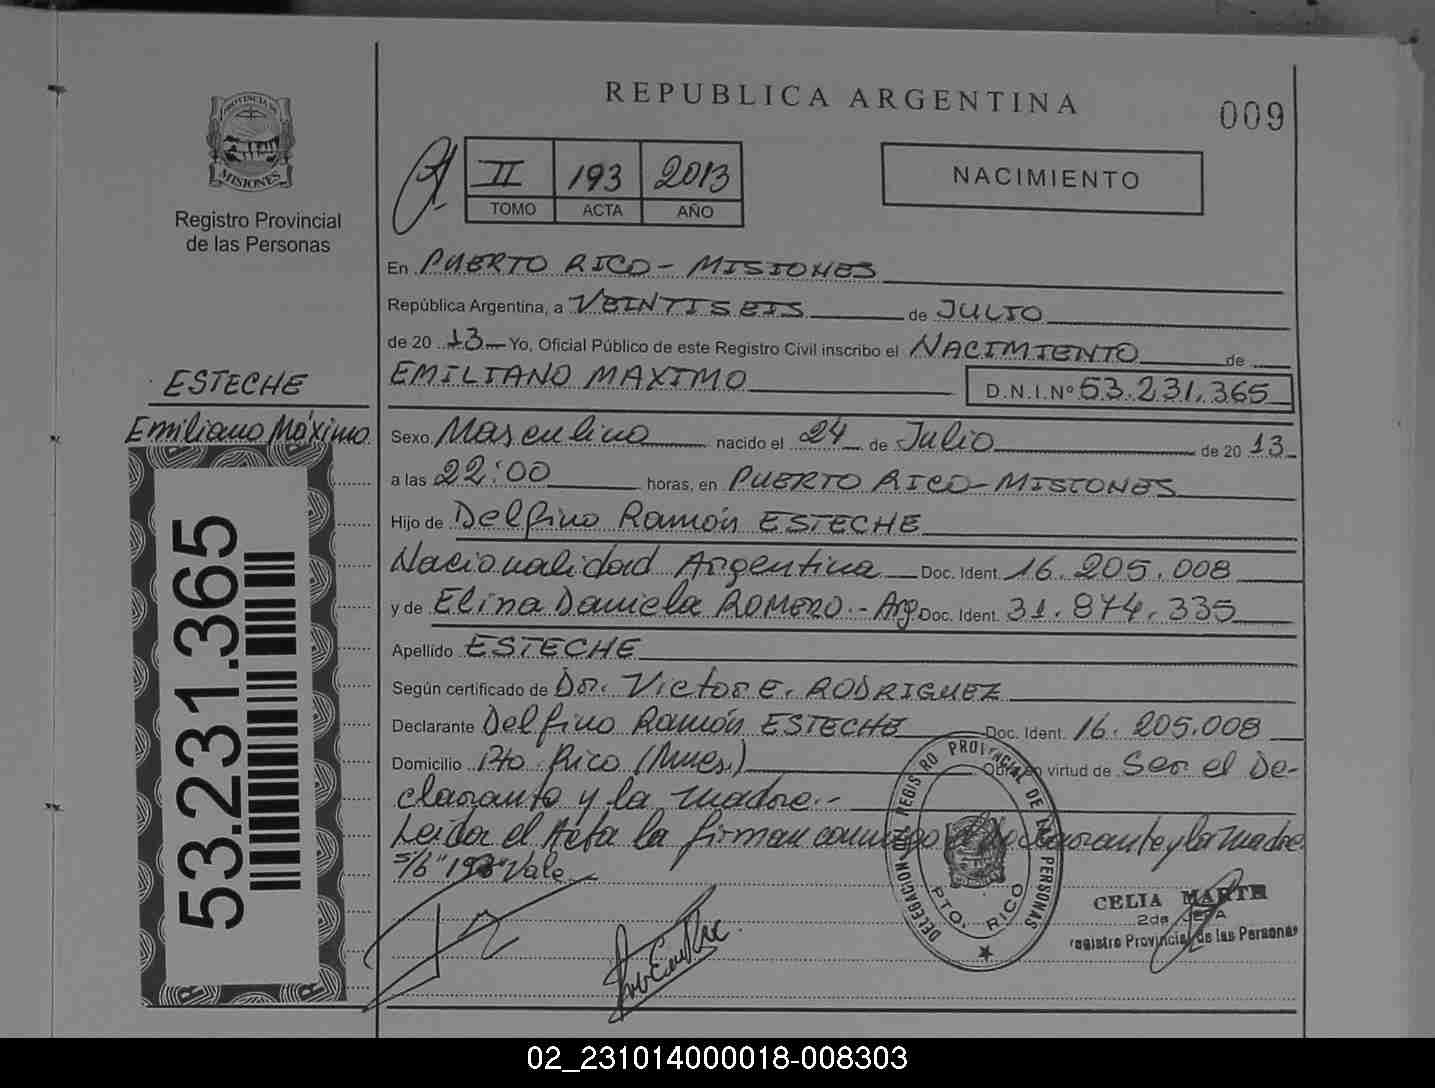 REPUBLICA ARGENTINA
009
PROVINCIA DE
MISIONES
Registro Provincial
de las Personas
II 193 2013
TOMO ACTA AÑO
NACIMIENTO
En PUERTO RICO - MISIONES
República Argentina, a VEINTISEIS de JULIO
de 20 13 Yo, Oficial Público de este Registro Civil inscribo el NACIMIENTO de
EMILIANO MAXIMO D.N.I.Nº 53.231.365
ESTECHE
Emiliano Máximo
Sexo Masculino nacido el 24 de Julio de 20 13
a las 22:00 horas, en PUERTO RICO - MISIONES
Hijo de Delfino Ramón ESTECHE
Nacionalidad Argentina Doc. Ident. 16.205.008
y de Elina Daniela ROMERO.- Arg. Doc. Ident. 31.874.335
Apellido ESTECHE
Según certificado de Dr. Victor E. RODRIGUEZ
Declarante Delfino Ramón ESTECHE Doc. Ident. 16.205.008
Domicilio Pto. Rico (Mnes.) Obra en virtud de Ser el De-
clarante y la madre.-
Leida el Acta la firman conmigo el Declarante y la madre
S/b "193" Vale
53.231.365
DELEGACION DEL REGISTRO PROVINCIAL DE LAS PERSONAS
PTO. RICO
CELIA
2da JEFA
Registro Provincial de las Personas
02_231014000018-008303